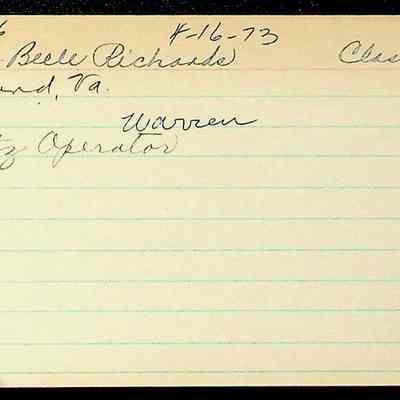 4-16-73
Belle Richards Clas
ond, Va.
Warren
Operator